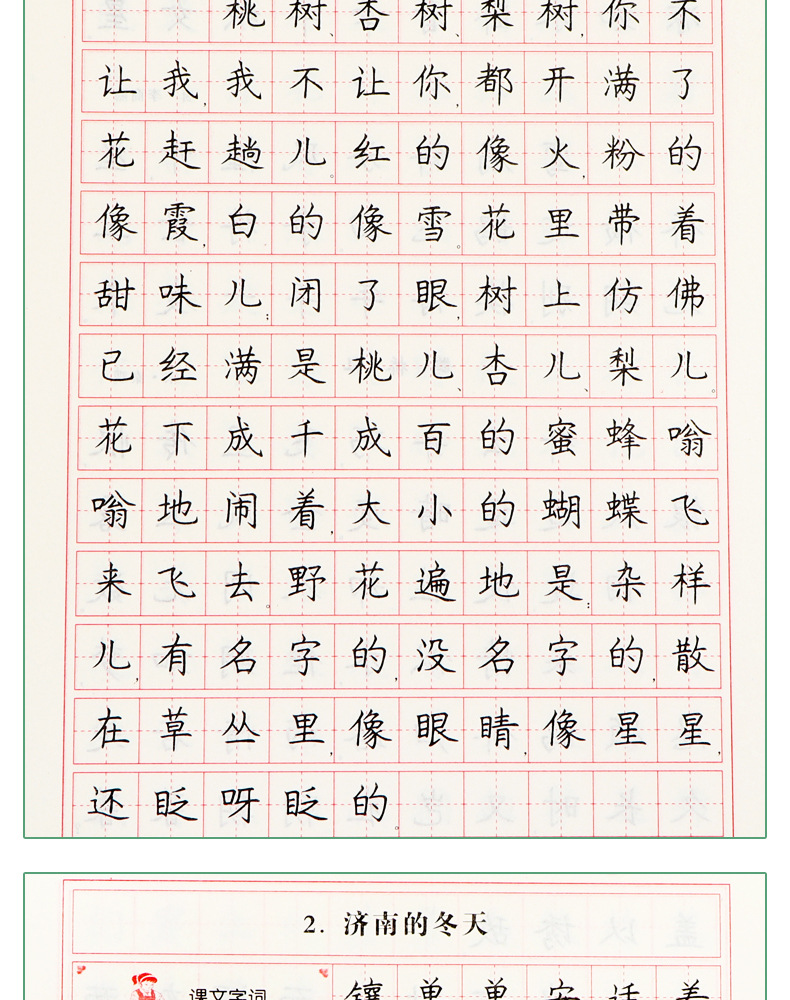 桃树、杏树、梨树,你不
让我,我不让你,都开满了
花赶趟儿。红的像火,粉的
像霞,白的像雪。花里带着
甜味儿;闭了眼,树上仿佛
已经满是桃儿、杏儿、梨儿。
花下成千成百的蜜蜂嗡
嗡地闹着,大小的蝴蝶飞
来飞去。野花遍地是:杂样
儿,有名字的,没名字的,散
在草丛里,像眼睛,像星星,
还眨呀眨的。
2. 济南的冬天
课文字词
镶 单 单 安 适 着